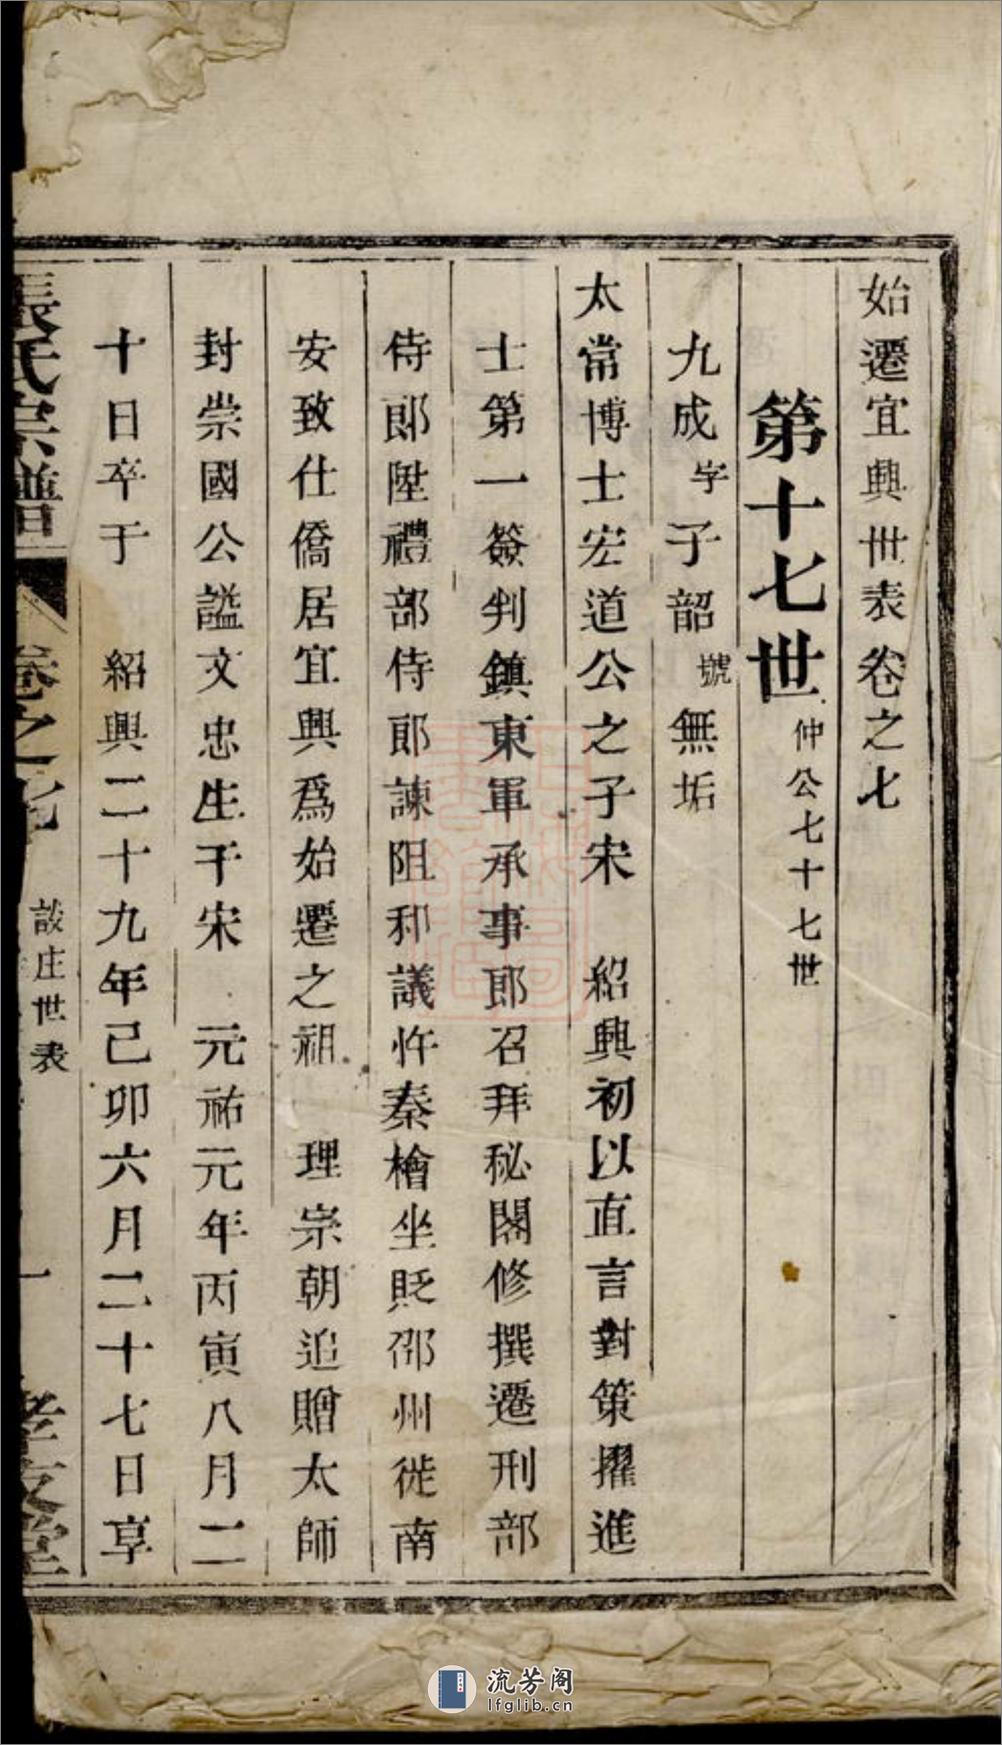 始遷宜興世表卷之七
第十七世 仲公七十七世
九成 字 子韶 號 無垢
太常博士宏道公之子宋 紹興初以直言對策擢進
士第一簽判鎮東軍承事郎召拜秘閣修撰遷刑部
侍郎陞禮部侍郎諫阻和議忤秦檜坐貶邵州徙南
安致仕僑居宜興爲始遷之祖 理宗朝追贈太師
封崇國公謚文忠生于宋 元祐元年丙寅八月二
十日卒于 紹興二十九年己卯六月二十七日享
張氏宗譜 卷之七 談庄世表 一 孝友堂
流芳阁
lfglib.cn